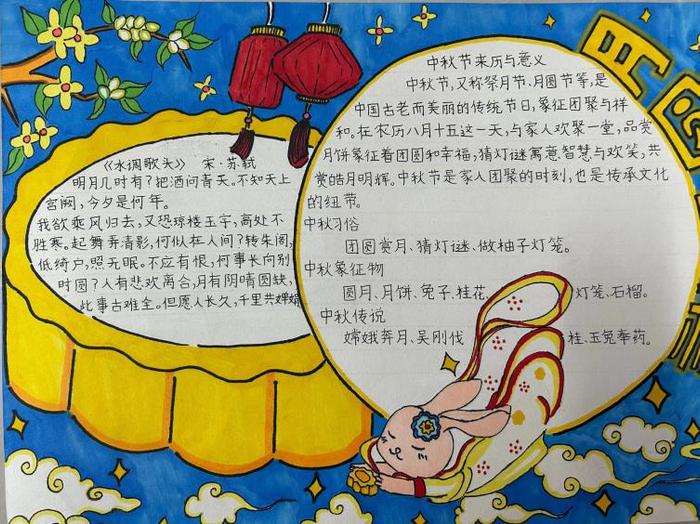 《水调歌头》 宋·苏轼
明月几时有?把酒问青天。不知天上
宫阙,今夕是何年。
我欲乘风归去,又恐琼楼玉宇,高处不
胜寒。起舞弄清影,何似在人间?转朱阁,
低绮户,照无眠。不应有恨,何事长向别
时圆?人有悲欢离合,月有阴晴圆缺,
此事古难全。但愿人长久,千里共婵娟
中秋节来历与意义
中秋节,又称祭月节、月圆节等,是
中国古老而美丽的传统节日,象征团聚与祥
和。在农历八月十五这一天,与家人欢聚一堂,品赏
月饼象征着团圆和幸福,猜灯谜寓意智慧与欢笑,共
赏皓月明辉。中秋节是家人团聚的时刻,也是传承文化
的纽带。
中秋习俗
团圆赏月、猜灯谜、做柚子灯笼。
中秋象征物
圆月、月饼、兔子、桂花、灯笼、石榴。
中秋传说
嫦娥奔月、吴刚伐桂、玉兔奉药。